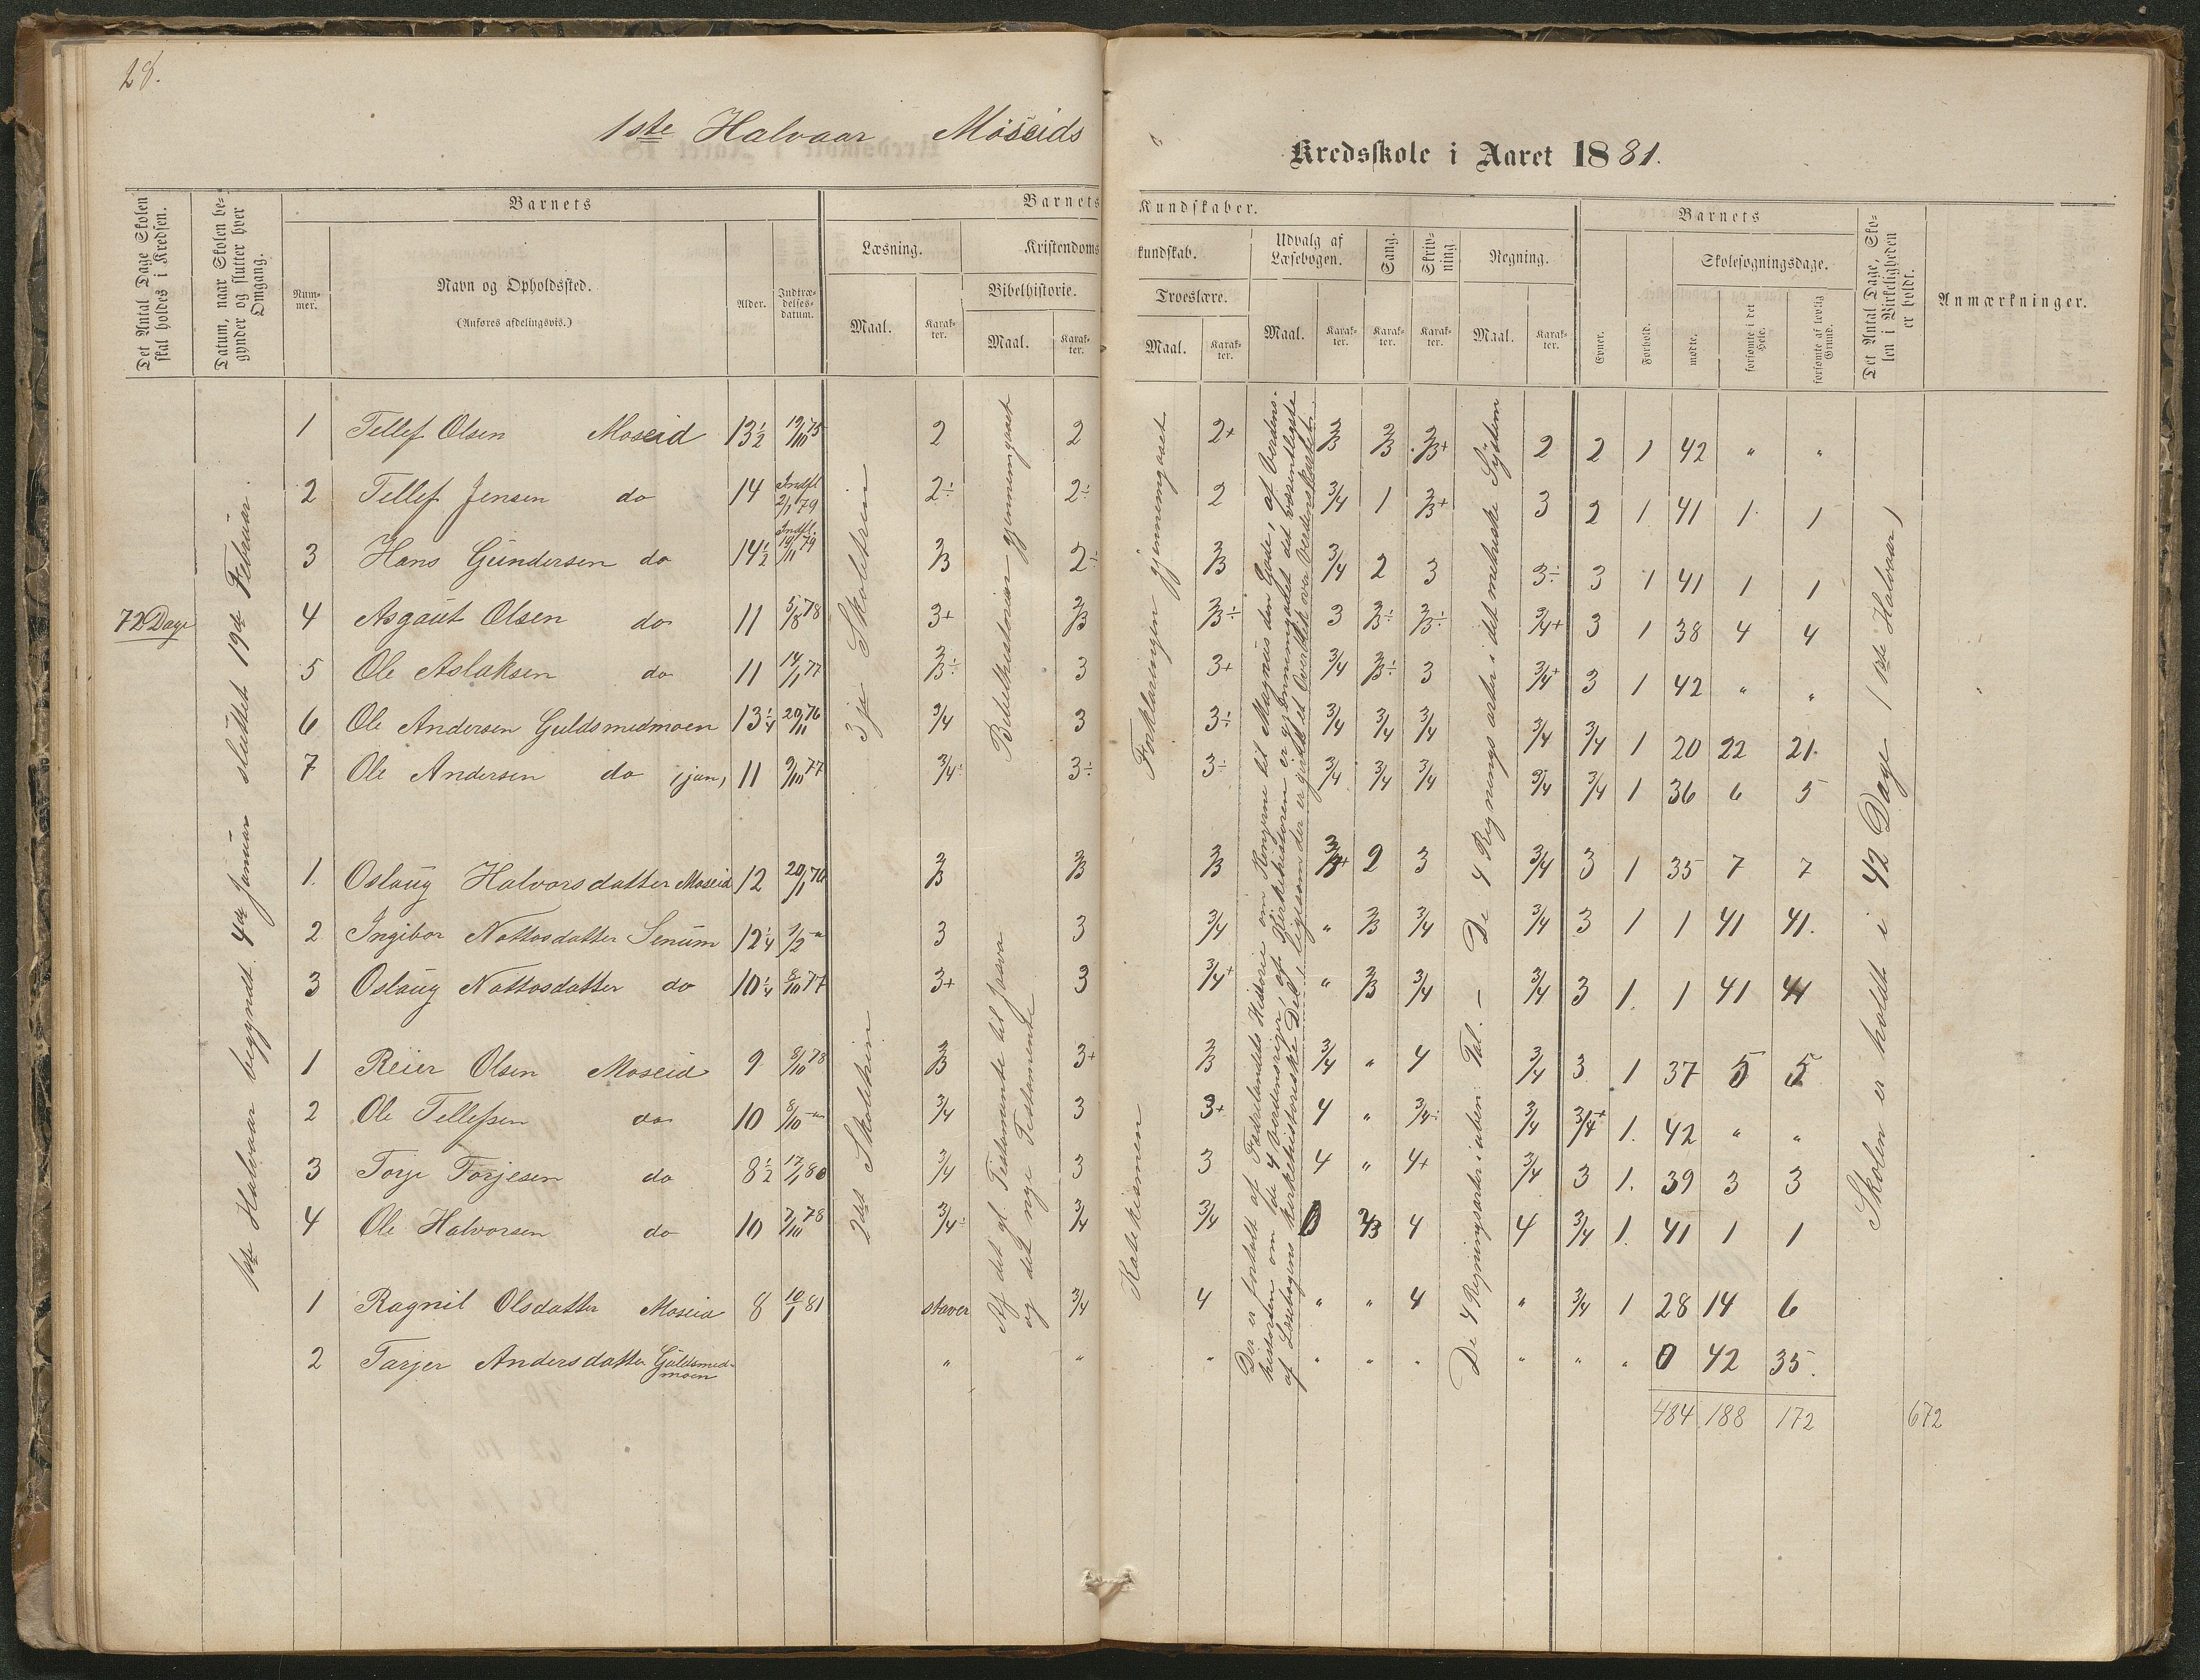 28.
1ste Halvaar Moseids
Kredsskole i Aaret 1881.
Det Antal Dage Skolen skal holdes i Kredsen.
Datum, naar Skolen begynder og slutter hver Omgang.
Barnets
Nummer.
Navn og Opholdssted.
(Anføres afdelingsvis.)
Alder.
Indtrædelsesdatum.
Barnets Kundskaber.
Læsning.
Maal. Karakter.
Kristendomskundskab.
Bibelhistorie.
Maal. Karakter.
Troeslære.
Maal. Karakter.
Udvalg af Læsebogen.
Maal. Karakter.
Sang.
Karakter.
Skrivning.
Karakter.
Regning.
Maal. Karakter.
Barnets
Evner.
Forhold.
Skolesøgningsdage.
mødte.
forsømte i det Hele.
forsømte af lovlig Grund.
Det Antal Dage, Skolen i Virkeligheden er holdt.
Anmærkninger.
72 Dage
1ste Halvaar begyndt 4de Januar sluttet 19de Februar.
3je Skoletrin
2det Skoletrin
Bibelhistorien gjennemgaaet
Af det gl. Testamente til Josva
og det nye Testamente
Forklaringen gjennemgaaet
Katekismen
Der er fortalt af Fædrelandets Historie om Kongerne til Magnus den Gode, af Verdens-
historien om de 4 Verdensriger, af Kirkehistorien er gjennemgaaet det væsentligste
af Læsebogens kirkehistoriske Del, ligesom der er givet et Overblik over Verdenskartet.
De 4 Regningsarter i det metriske System
De 4 Regningsarter i uben. Tal. —
Skolen er holdt i 42 Dage (1ste Halvaar)
1 Tellef Olsen Moseid 13½ 19/10 75 2 2 2+ 2/3 2/3 2/3+ 2 2 1 42 " "
2 Tellef Jensen do 14 Indfl 2/1 79 2÷ 2÷ 2 3/4 1 2/3+ 3 2 1 41 1 1
3 Hans Gundersen do 14½ Indfl. 19/11 79 2/3 2÷ 2/3 3/4 2 3 3÷ 3 1 41 1 1
4 Asgaut Olsen do 11 5/8 78 3+ 2/3 2/3÷ 3 2/3÷ 2/3÷ 3/4+ 3 1 38 4 4
5 Ole Aslaksen do 11 14/1 77 2/3÷ 3 3+ 3/4 2/3÷ 3 3/4+ 3 1 42 " "
6 Ole Andersen Guldsmedmoen 13¼ 20/11 76 3/4 3 3÷ 3/4 3/4 3/4 3/4 3/4 1 20 22 21.
7 Ole Andersen do (jun) 11 9/10 77 3/4÷ 3÷ 3÷ 3/4 3/4 3/4 3/4 3/4 1 36 6 5
1. Oslaug Halvorsdatter Moseid 12 20/1 76 2/3 2/3 2/3 3/4+ 2 3 3/4 3 1 35 7 7
2 Ingibor Nottosdatter Senum 12¼ 3 3 3/4 " 2/3 3/4 3/4 3 1 1 41 41.
3 Oslaug Nottosdatter do 10¼ 8/10 77 3+ 3 3/4+ " 2/3 3/4 3/4 3 1. 1 41 41
1 Reier Olsen Moseid 9 8/10 78 2/3 3+ 2/3 3/4 " 4 3/4 3 1 37 5 5
2 Ole Tellefsen do 10 8/10 – " 3/4 3 3+ 4 " 3/4÷ 3/4 3/4+ 1. 42 " "
3 Torje Torjesen do 8½ 17/1 80 3/4 3 3 4 " 4+ 3/4 3 1. 39 3 3
4 Ole Halvorsen do 10 7/10 78 3/4÷ 3/4 3/4 0 2/3 4 4 3/4 1. 41 1 1
1 Ragnil Olsdatter Moseid 8 10/1 81 staver 3/4 4 " " 4 " 3/4 1 28 14 6
2 Tarjer Andersdatter Guldsmedmoen " " " " " " " " " 0 42 35.
484 188 172 672